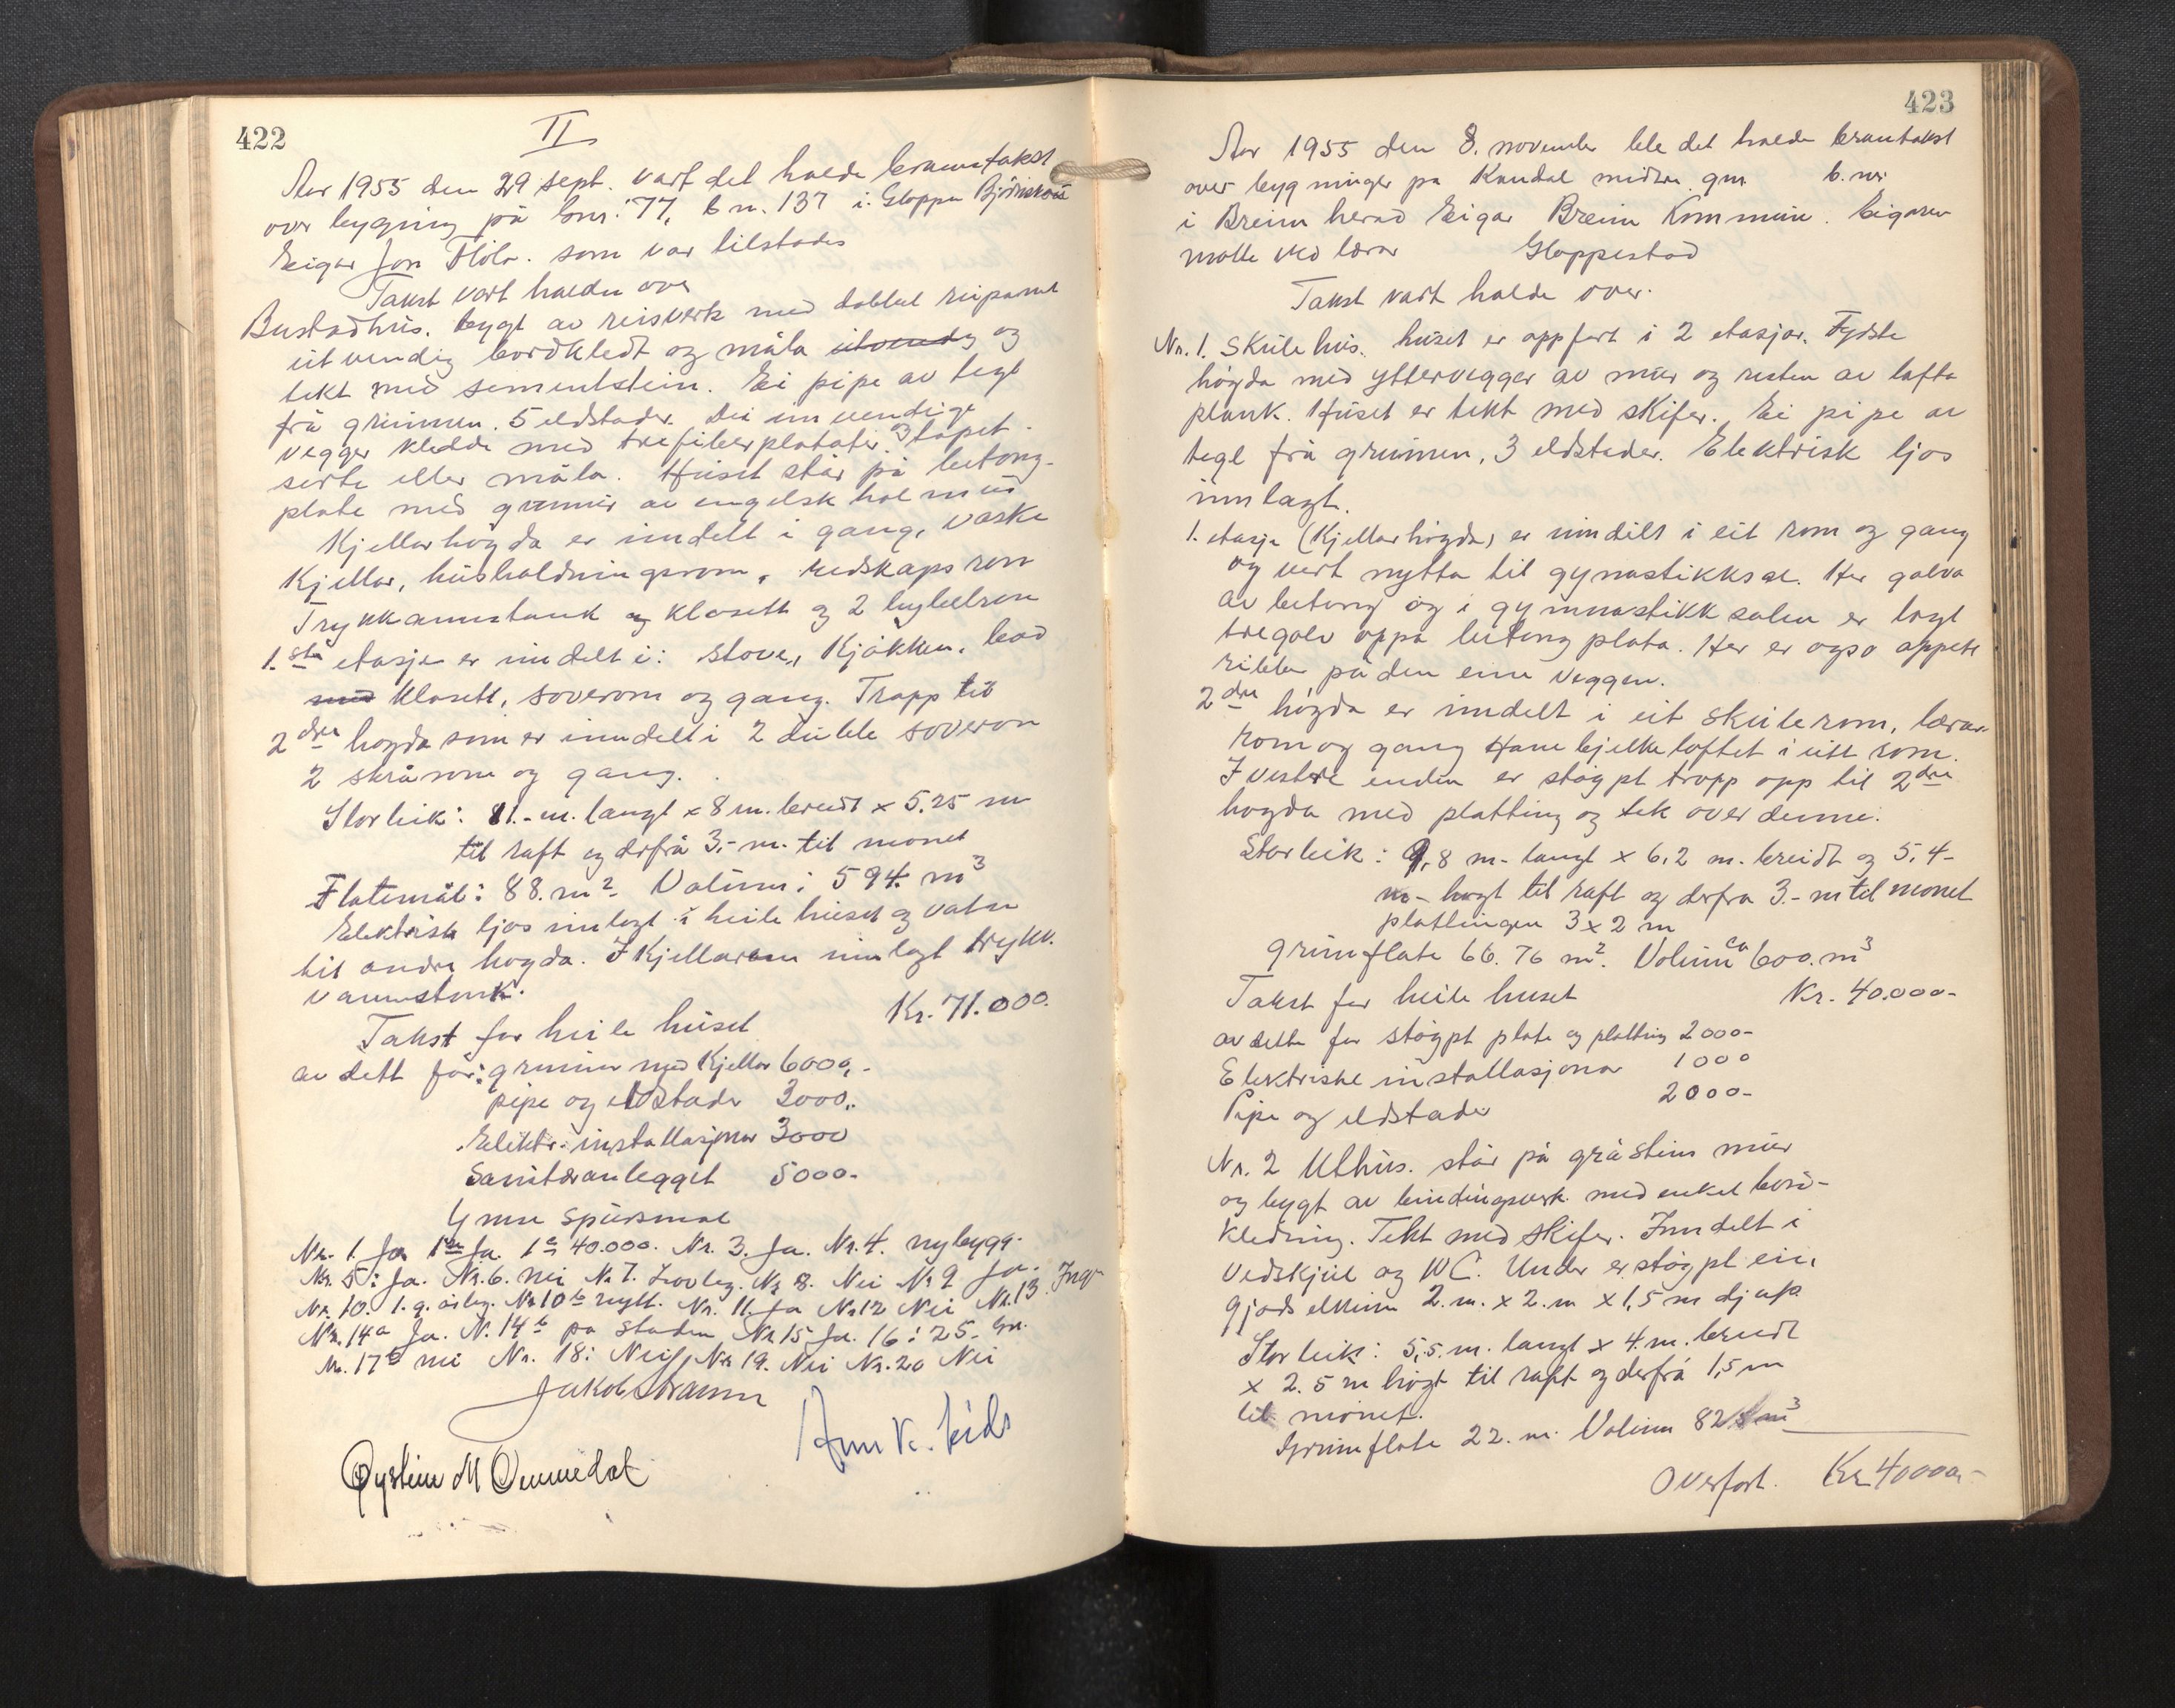 422
II
Aar 1955 den 29 sept. vart det halde branntakst
over bygning på Gnr. 77, b n. 137 i Gloppen
Eigar Jon Flölo. som var tilstades
Takst vart halden over
Bustadhus. bygt av reisverk med dobbel
utvendig bordkledt og måla utvendig og
tekt med sementstein. Ei pipe av tegl
frå grunnen. 5 eldstader. Dei innvendige
vegger kledde med trefiberplatater og tapet-
serte eller måla. Huset står på betong-
plate med grunmur av engelsk hol mur
Kjellarhögda er inndelt i gang, vaske
Kjellar, husholdningsrom, redskapsrom
Trykkannstank og klosett og 2 hybelrom
1.sta etasje er inndelt i: stove, Kjökken, bad
med klosett, soverom og gang. Trapp til
2dre hogda som er inndelt i 2 duble soverom
2 skråromm og gang.
Storleik: 11.- m. langt x 8 m. breidt x 5.25 m
til raft og derfrå 3.- m. til mönet
Flatemål: 88. m2 Volum: 594. m3
Elektrisk ljos innlagt i heile huset og vatn
til andre hogda. I Kjellaren innlagt trykk.
vannstank.
Takst for heile huset Kr. 71.000.
av dett for: grunnmur med Kjellar 6000,-
pipe og eldstader 3000,.
Elektr. installasjonar 3000
Sanitæranlegget 5000-
Ymse spursmal
Nr. 1. Ja 1 Ja. 1c 40.000. Nr. 3. Ja. Nr. 4. nybygg.
Nr. 5: Ja. Nr. 6. nei Nr 7. Lovleg. Nr 8. Nei Nr 9 Ja.
Nr. 10. 1. g. årleg. Nr 10b nytt. Nr. 11. Ja Nr 12 Nei Nr. 13. Ingen
Nr. 14a Ja. N. 14b på staden Nr 15 Ja. 16: 25.
Nr. 17b nei Nr. 18: Nei Nr 19. Nei Nr. 20 Nei
Jakob
Øystein M Ommedal
K. Eide
423
Aar 1955 den 8. november ble det halde branntakst
over bygninger på Kandal midtre gnr b. nr.
i Breim herad Eigar Breim Kommune. Eigaren
møtte ved lærar Gloppestad
Takst vart halde over.
Nr. 1. Skulehus. huset er oppfört i 2 etasjar. Fydste
högda med yttervegger av mur og resten av lafta
plank. Huset er tekt med skifer. Ei pipe av
tegl frå grunnen, 3 eldstader. Elektrisk ljos
innlagt.
1. etasje (Kjellarhögda) er inndelt i eit rom og gang
og vert nytta til gynastikksal. Her golva
av betong og i gymnastikk salen er lagt
tregolv oppå betong plata. Her er også oppsett
ribber på den eine veggen.
2dre högda er inndelt i eit skulerom, lærar-
rom og gang Hanebjelkeloftet i eitt rom.
I vestre enden er stöypt tropp opp til 2dre
hogda med platting og tek over denne.
Storleik: 9,8 m- langt x 6,2 m. breidt og 5,4-
m- hogt til raft og derfra 3.- m til monet
plattingen 3 x 2 m
grunnflate 66.76 m2. Volum ca 600. m3
Takst for heile huset Kr. 40.000-
av dette for stöypt plate og platting 2000-
Elektriske installasjonar 1000
Pipe og eldstader 2000-
Nr. 2 Uthus. står på gråsteins mur
og bygt av bindingsverk med enkel bord-
kledning. Tekt med skifer. Inndelt i
Vedskjul og WC. Under er stöypt ein
gjödselkum 2. m. x 2. m x 1,5 m djup.
Storleik: 5,5. m. langt x 4. m. breidt
x 2.5 m högt til raft og derfrå 1,5 m
til mönet.
Grunnflate 22. m. Volum 82 m3
Overfört. Kr 40000,-